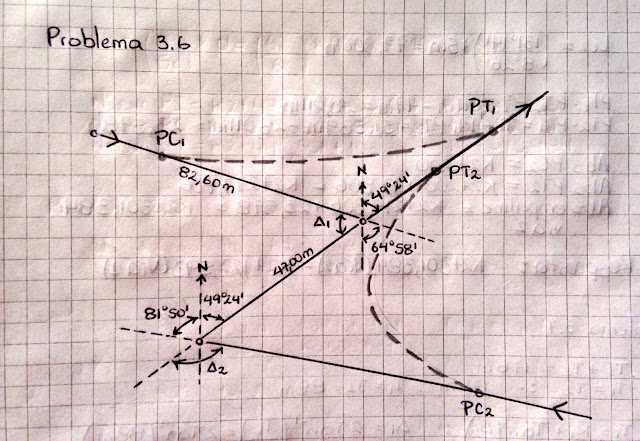 Problema 3.6
PT₁
PC₁
82,60m
N
49°24'
PT₂
Δ₁
64°58'
47,00m
N
81°50'
49°24'
Δ₂
PC₂